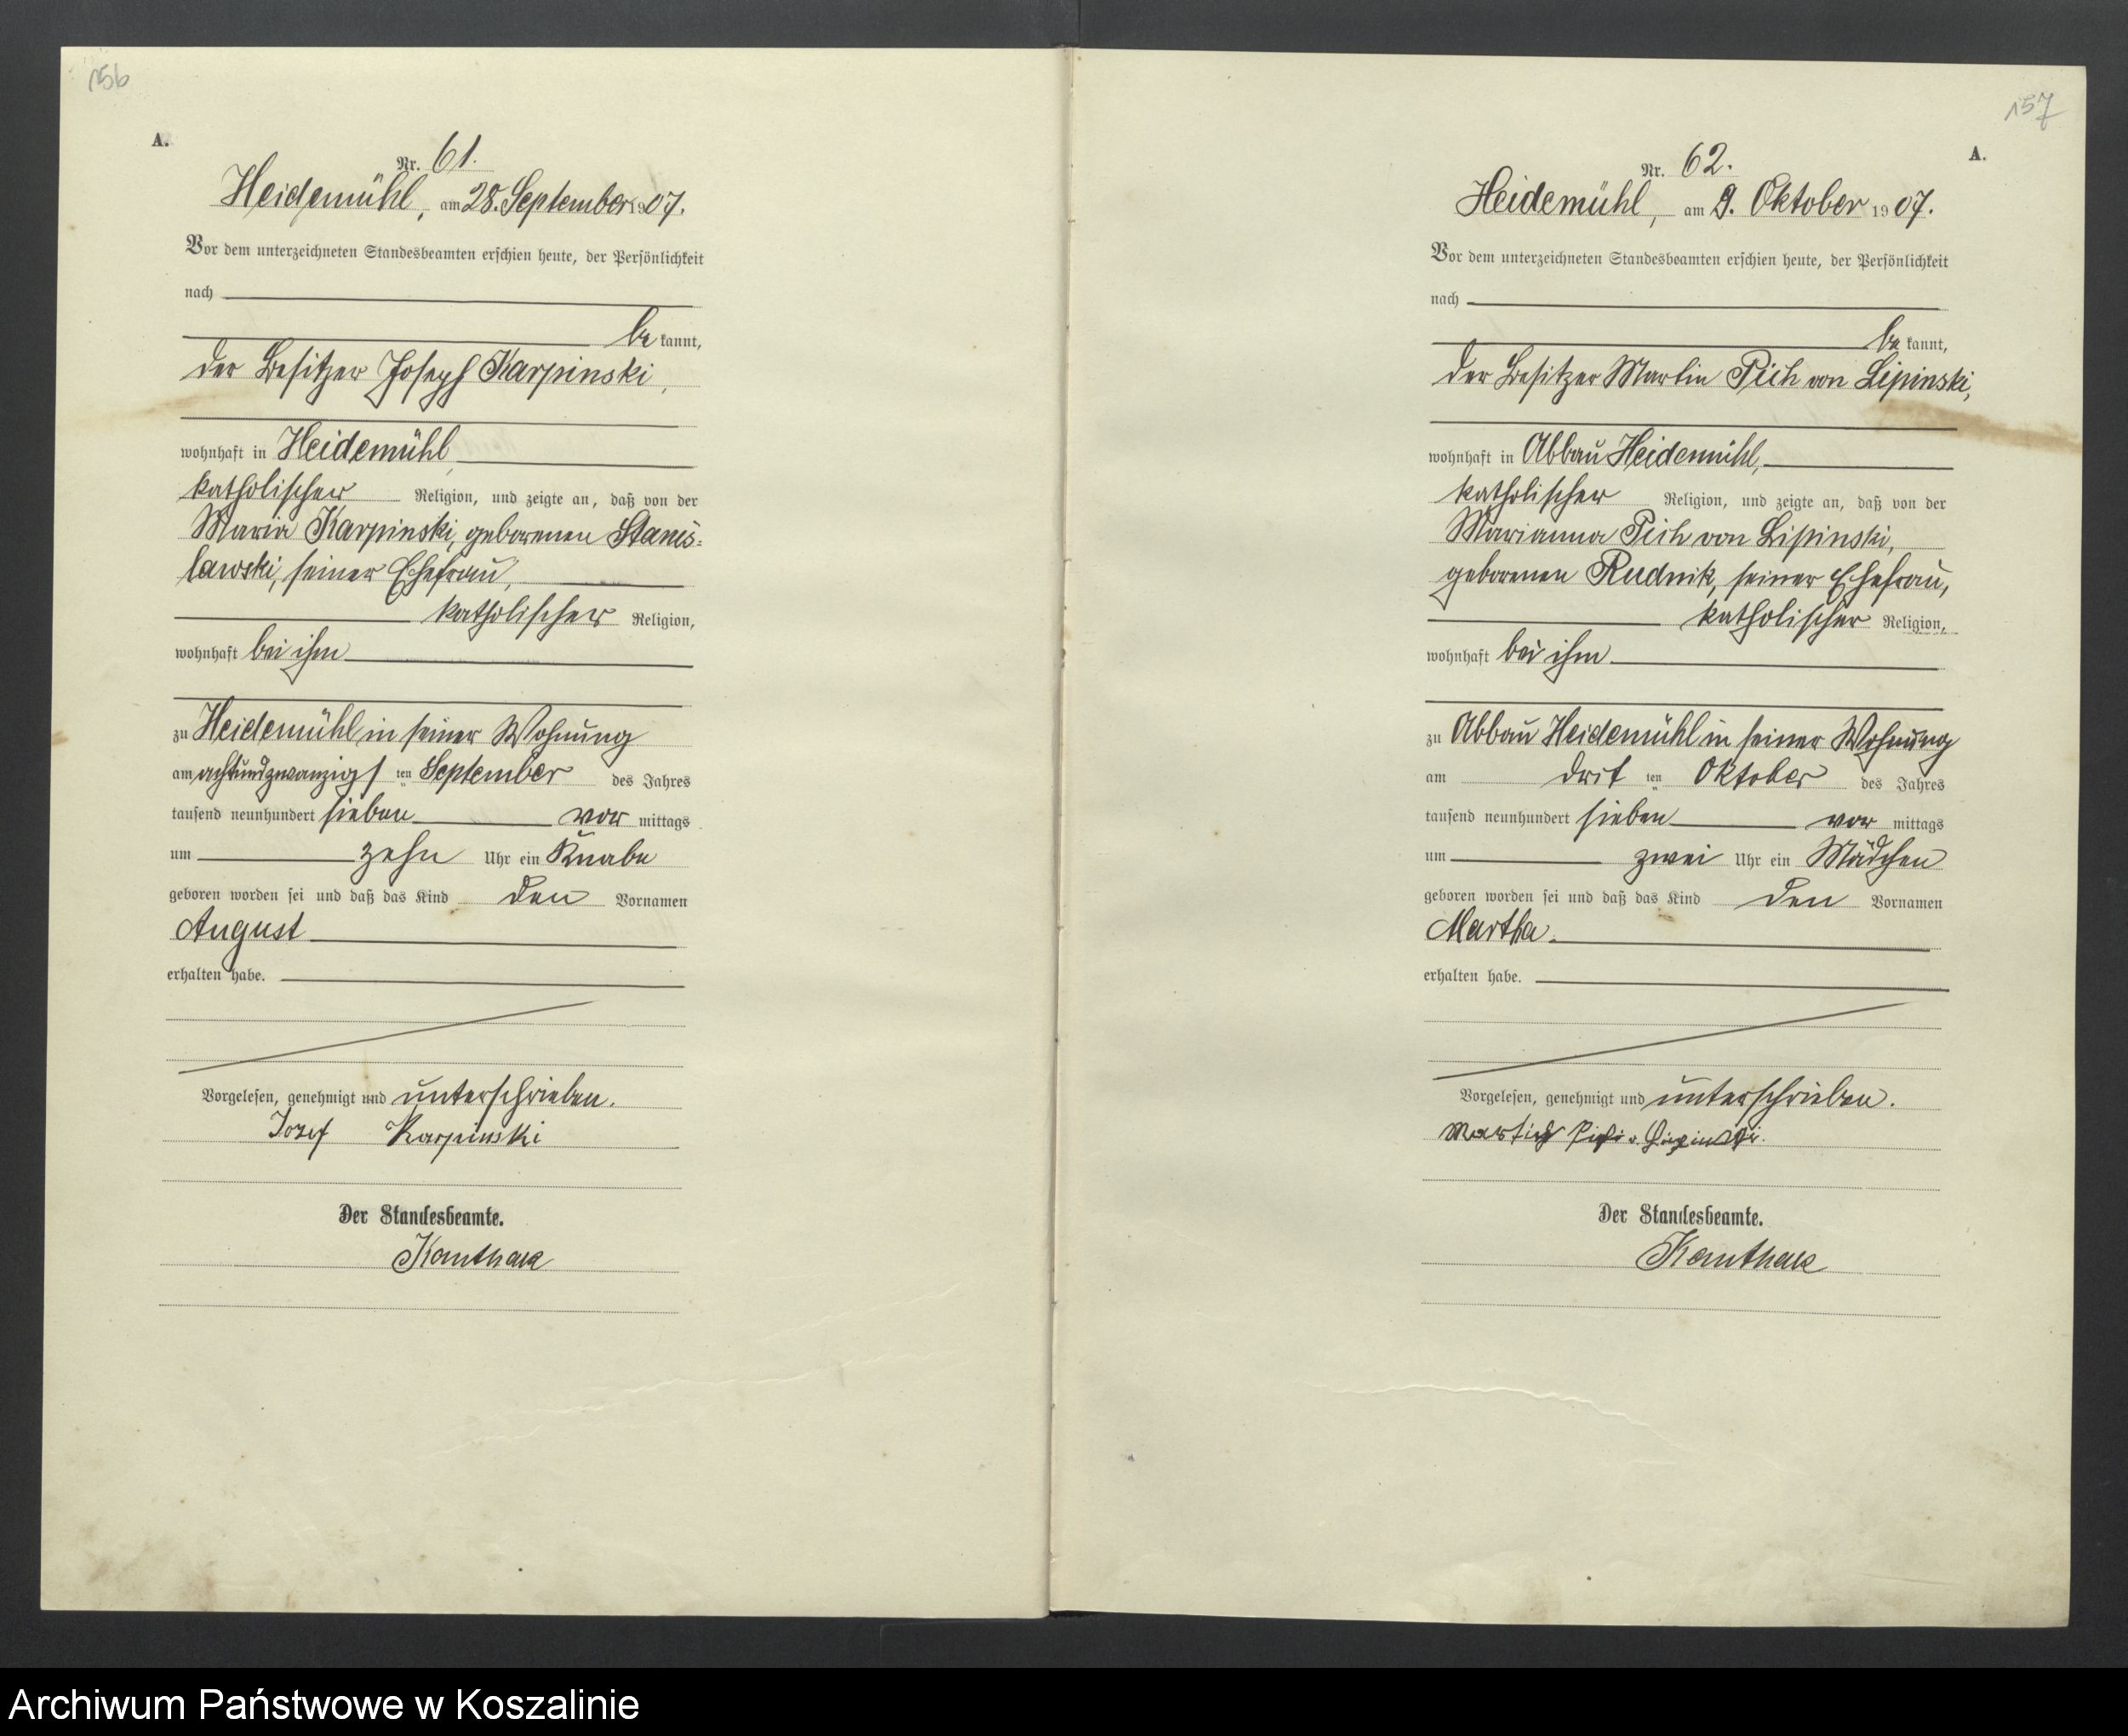 156
A.
Nr. 61.
Heidemühl, am 28. September 1907.
Vor dem unterzeichneten Standesbeamten erschien heute, der Persönlichkeit
nach
be kannt,
der Besitzer Joseph Karpinski,
wohnhaft in Heidemühl
katholischer Religion, und zeigte an, daß von der
Maria Karpinski, geborenen Stanis=
lawski, seiner Ehefrau,
katholischer Religion,
wohnhaft bei ihm
zu Heidemühl in seiner Wohnung
am achtundzwanzigsten September des Jahres
tausend neunhundert sieben vor mittags
um zehn Uhr ein Knabe
geboren worden sei und daß das Kind den Vornamen
August
erhalten habe.
Vorgelesen, genehmigt und unterschrieben.
Jozef Karpinski
Der Standesbeamte.
Kanthak
157
A.
Nr. 62.
Heidemühl, am 9. Oktober 1907.
Vor dem unterzeichneten Standesbeamten erschien heute, der Persönlichkeit
nach
be kannt,
der Besitzer Martin Pich von Lipinski,
wohnhaft in Abbau Heidemühl,
katholischer Religion, und zeigte an, daß von der
Marianna Pich von Lipinski,
geborenen Rudnik, seiner Ehefrau,
katholischer Religion,
wohnhaft bei ihm
zu Abbau Heidemühl in seiner Wohnung
am dritten Oktober des Jahres
tausend neunhundert sieben vor mittags
um zwei Uhr ein Mädchen
geboren worden sei und daß das Kind den Vornamen
Martha.
erhalten habe.
Vorgelesen, genehmigt und unterschrieben.
v. Lipinski.
Der Standesbeamte.
Kanthak
Archiwum Państwowe w Koszalinie